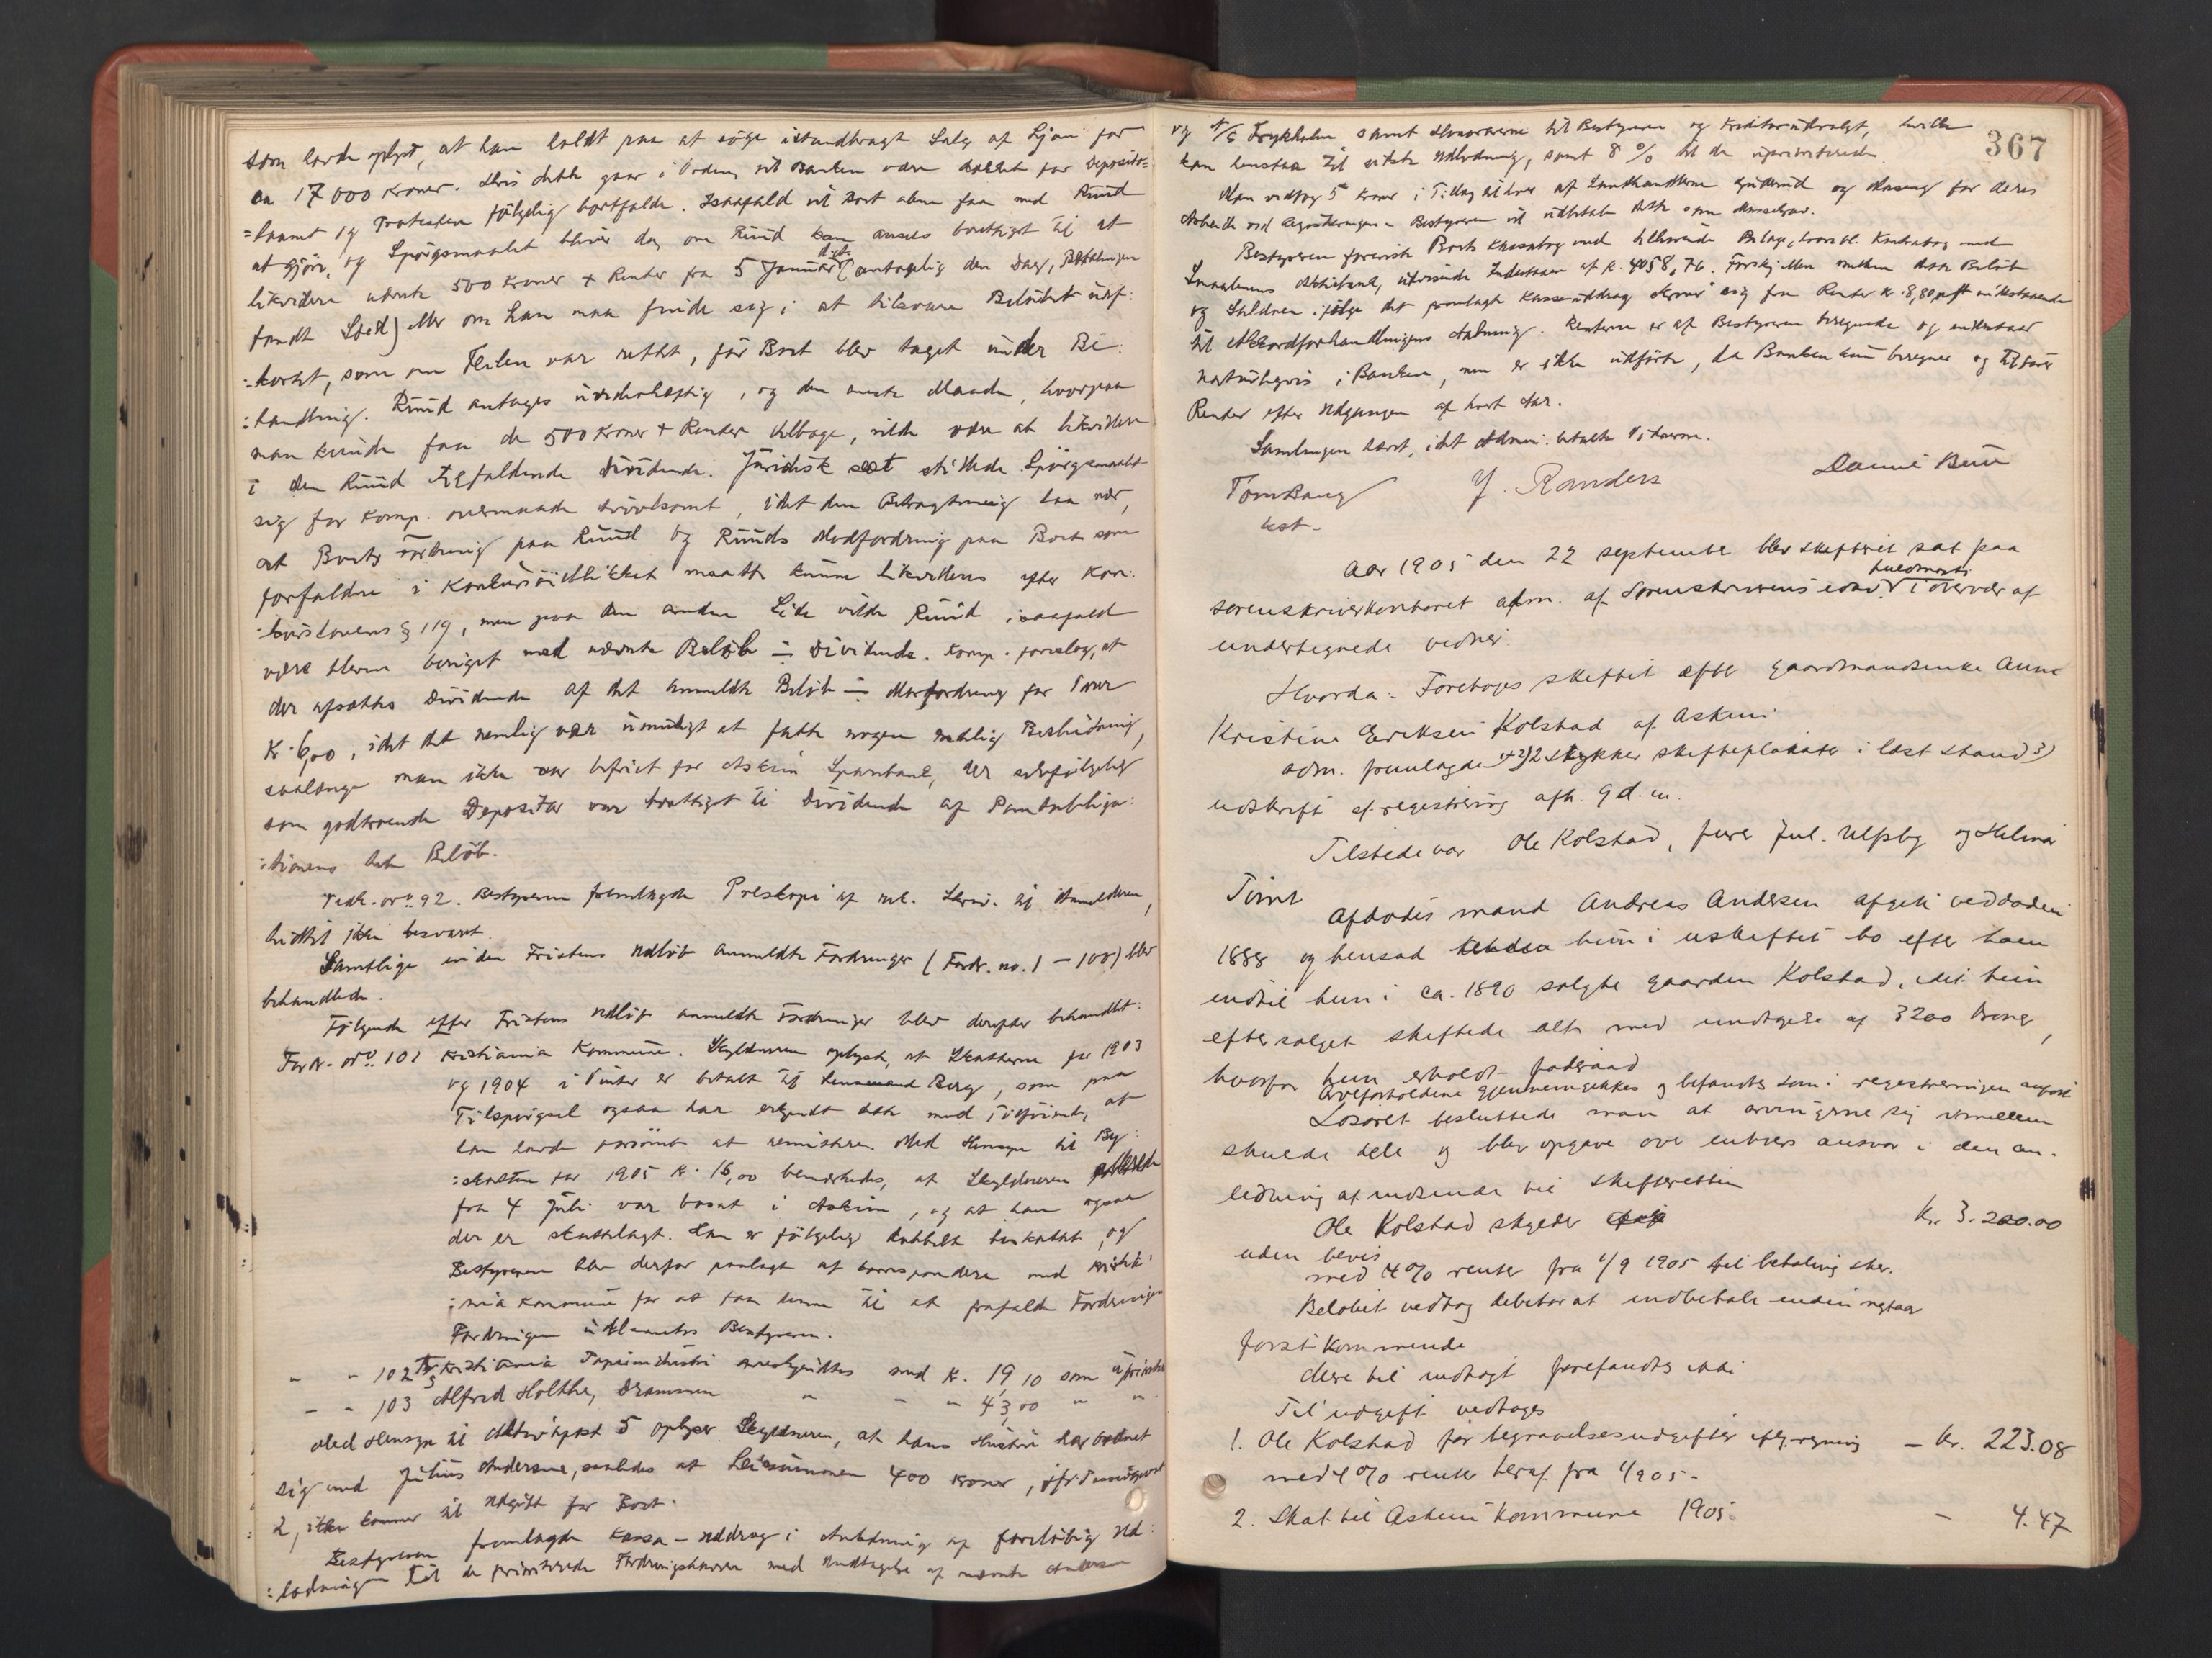 som havde oplyst, at han holdt paa at søge istandbragt Salg af Ljan for
ca 17000 Kroner. Hvis dette gaar i Orden, vil Banken være dækket for Deposito-
=laanet og Protesten følgelig bortfalde. Isaafald vil Boet alene faa med Ruud
at gjøre, og Spørgsmaalet bliver da, om Ruud kan ansees berettiget til at
likvidere nævnte 500 Kroner + Renter fra 5 Januar d.A. (antagelig den Dag, Betalingen
fandt Sted) eller om han maa finde sig i at tilsvare Beløbet uaf:
:kortet, som om Feilen var rettet, før Boet blev taget under Be:
:handling. Ruud antages uvederhæftig, og den eneste Maade, hvorpaa
man kunde faa de 500 Kroner + Renter tilbage, vilde være at likvidere
i den Ruud tilfaldende Dividende. Juridisk seet stillede Spørgsmaalet
sig for Komp. overmaade tvivlsomt, idet den Betragtning laa nær,
at Boets Fordring paa Ruud og Ruuds Modfordring paa Boet som
forfaldne i Konkursøieblikket maatte kunne likvideres efter Kon:
:kurslovens § 119, men paa den anden Side vilde Ruud isaafald
være bleven beriget med nævnte Beløb ÷ Dividende. Komp. foreslog, at
der afsættes Dividende af det anmeldte Beløb ÷ Modfordring for Varer
Kr. 6,00, idet det nemlig var umuligt at fatte nogen endelig Beslutning,
saalænge man ikke var befriet for Askim Sparebank, der selvfølgelig
som godtroende Depositar var berettiget til Dividende af Panteobliga:
:tionens hele Beløb.
Fordr. No. 92. Bestyreren fremlagde Preskopi af rek. Skriv. til Anmelderen,
hidtil ikke besvaret.
Samtlige inden Fristens Udløb anmeldte Fordringer (Fordr. no. 1 - 100) blev
behandlede.
Følgende efter Fristens Udløb anmeldte Fordringer blev derefter behandlet:
Fordr. No. 101 Kristiania Kommune. Skyldneren oplyste, at Skatterne for 1903
og 1904 i Vinter er betalt til Lensmand Berg, som paa
Tilspørgsel ogsaa har erkjendt dette med Tilføiende, at
han havde forsømt at remittere. Med Hensyn til By:
:skatten for 1905 Kr. 16,00 bemærkedes, at Skyldneren allerede
fra 4 Juli var bosat i Askim, og at han ogsaa
der er skattelagt. Han er følgelig dobbelt beskattet, og
Bestyreren blev derfor paalagt at korrespondere med Kristi:
:ania Kommune for at faa denne til at frafalde Fordringen
Fordringen udsættes Bestyreren.
" " 102 Kristiania Papirindustri anerkjendtes med Kr. 19,10 som uprioriteret
" " 103 Alfred Holthe, Drammen " " " 43,00 " "
Med Hensyn til Aktivpost 5 oplyser Skyldneren, at hans Hustru har ordnet
sig med Julius Andersen, saaledes at Leiesummen 400 Kroner, jfr Passivpost
2, ikke kommer til Udgift for Boet.
Bestyreren fremlagde Kassa-uddrag i Anledning af foreløbig Ud:
:lodning til de prioriterede Fordringshavere med Undtagelse af nævnte Andersen
367
og A/S Trykkeken samt Honorarerne til Bestyrer og Kreditorudvalget, hvilke
kan henstaa til sidste Udlodning, samt 8 % til de uprioriterede.
Man vedtog 5 Kroner i Tillæg til hver af Landhandlerne Gudmund og Hasing for deres
Arbeide ved Registreringen. Bestyreren vil udbetale dette som Massekrav.
Bestyreren foreviste Boets Kassabog med tilhørende Bilage, hvorbl. Kontrabog med
Smaalenenes Aktiebank, udvisende Indestaaende af Kr. 4058,76. Forskjellen mellem dette Beløb
og Saldoen ifølge det fremlagte Kasseuddrag skriver sig fra Renter Kr. 8,80
til Akkordforhandlingens Aabning. Renterne er af Bestyreren beregnede og indestaar
naturligvis i Banken, men er ikke udførte, da Banken kun beregner og tilfører
Renter efter Udgangen af hvert Aar.
Samlingen hævet, idet Admin. betalte Vidnerne.
Tom Bang Y. Randers
kst.
Aar 1905 den 22 september blev skifteret sat paa
sorenskriverkontoret adm. af Sorenskriverens edsv. fuldmægti i overvær af
undertegnede vedner.
Hvorda: Foretoges skiftet efter gaardmandsenke Anne
Kristine Eriksen Kolstad af Askim
adm. fremlagde 1+2) 2 stykker skifteplakater i læst stand 3)
udskrift af registrering afh. 9 d.m.
Tilstede var Ole Kolstad, furer Jul. Ulfsby og Hilmar
Timt
Afdødes mand Andreas Andersen afgik ved døden
1888 og hensad hun i uskiftet bo efter ham
indtil hun i ca. 1890 solgte gaarden Kolstad, idet hun
efter salget skiftede alt med undtagelse af 3200 kroner,
hvorfor hun erholdt føderaad
Arveforholdene gjennemgikkes og befandtes som i registreringen anført
Løsøret besluttede man at arvingerne sig imellem
skulde dele og blev opgave over enhvers ansvar i den an-
ledning at indsende til skifteretten
Ole Kolstad skylder kr. 3.200.00
uden bevis
med 4% renter fra 1/9 1905 til betaling sker.
Beløbet vedtog debitor at indbetale inden nytaar
førstkommende
Mere til indtægt forefandtes ikke
Til udgift vedtoges
1. Ole Kolstad for begravelsesudgifter iflg. regning - kr. 223.08
med 4% renter heraf fra 1/9 05 -
2. Skat til Askim kommune 1905 - 4.47